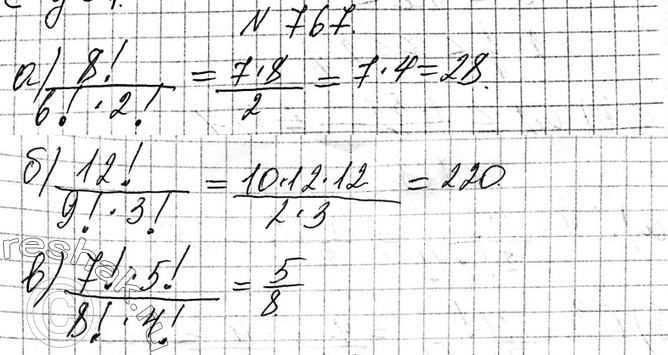 N 767.
а) 8! / 6! · 2! = 7·8 / 2 = 7·4 = 28.
б) 12! / 9! · 3! = 10·12·12 / 2·3 = 220.
в) 7! · 5! / 8! · 4! = 5 / 8
reshak.ru